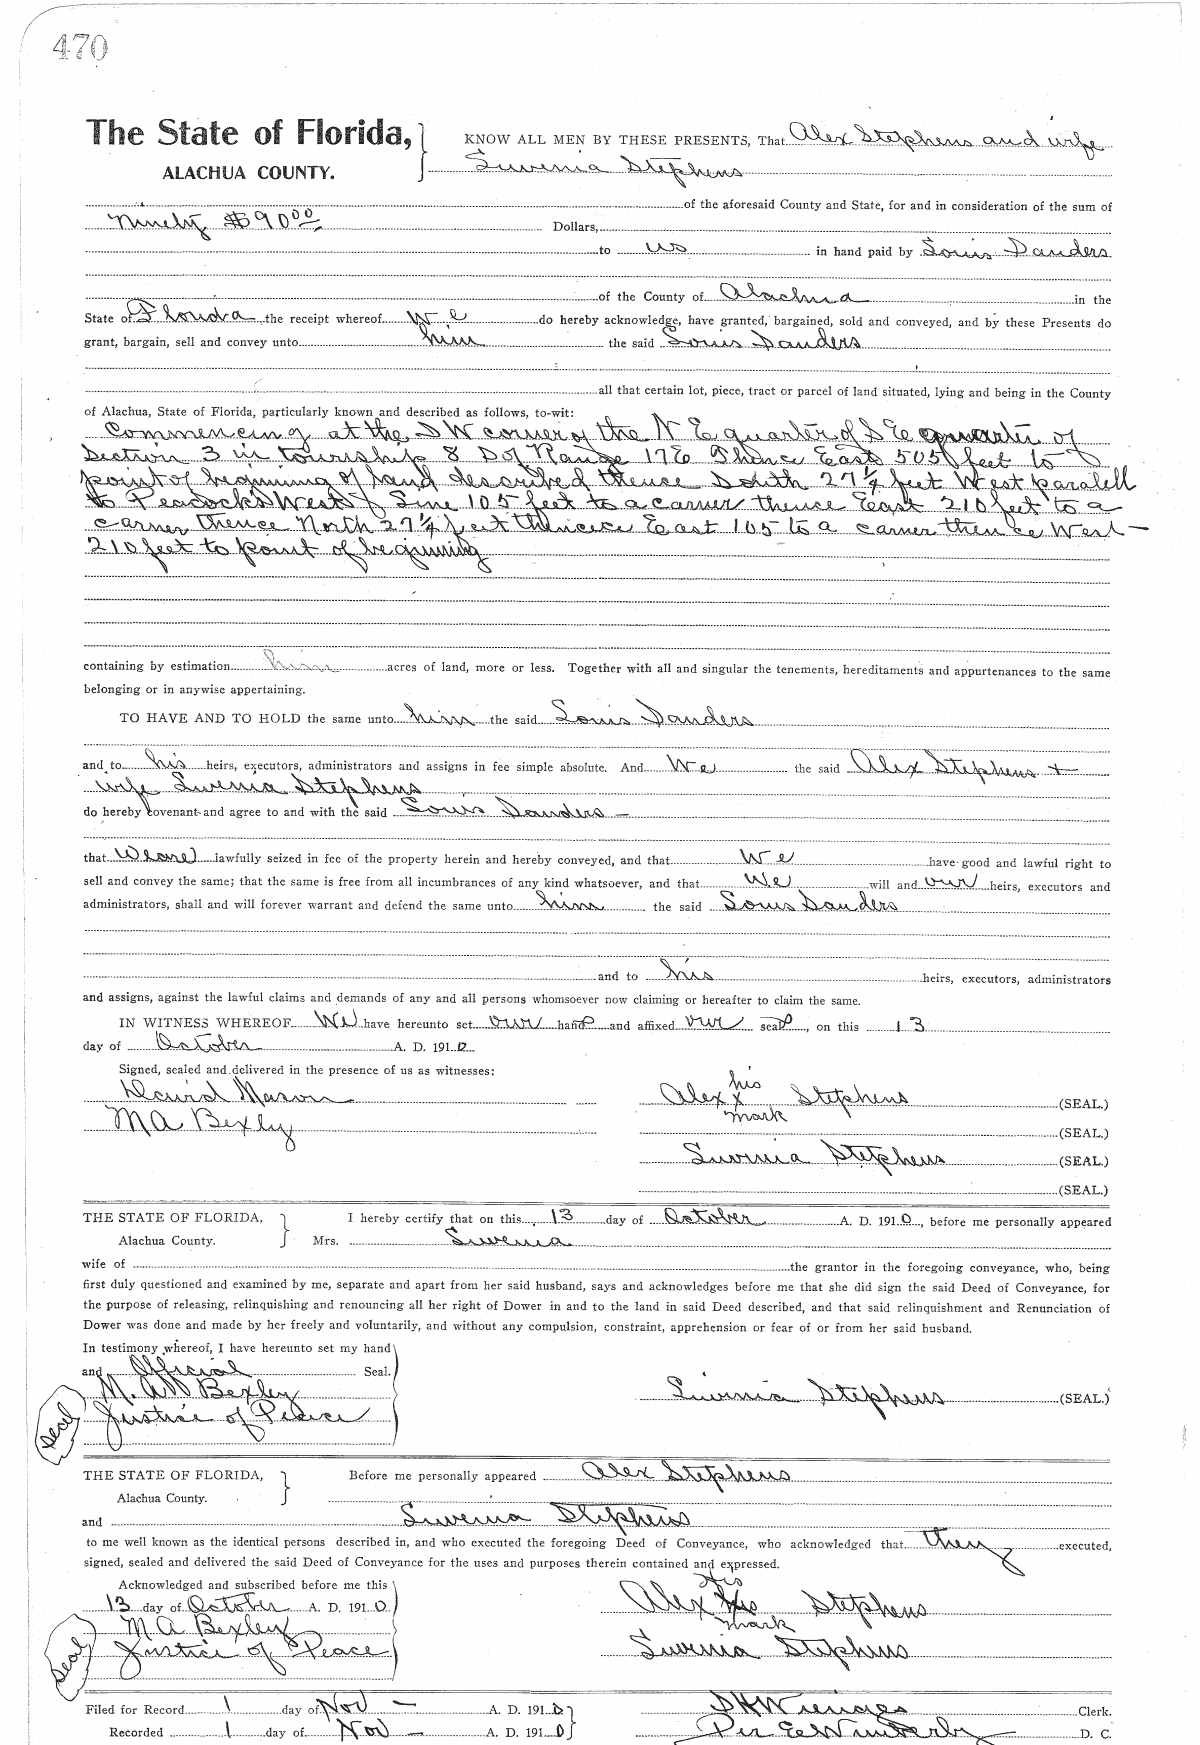 470
The State of Florida,
ALACHUA COUNTY.
KNOW ALL MEN BY THESE PRESENTS, That Alex Stephens and wife
Suvenia Stephens
of the aforesaid County and State, for and in consideration of the sum of
Ninety $90.00 Dollars,
to us in hand paid by Louis Sanders
of the County of Alachua in the
State of Florida the receipt whereof We do hereby acknowledge, have granted, bargained, sold and conveyed, and by these Presents do
grant, bargain, sell and convey unto him the said Louis Sanders
all that certain lot, piece, tract or parcel of land situated, lying and being in the County
of Alachua, State of Florida, particularly known and described as follows, to-wit:
Commencing at the SW corner of the N E quarter of S E quarter of
Section 3 in township 8 S of Range 17E Thence East 505 feet to
point of beginning of land described thence South 27¼ feet West paralell
to Peacocks West Line 105 feet to a carner thence East 210 feet to a
carner thence North 27¼ feet East 105 to a carner thence West
210 feet to point of beginning
containing by estimation him acres of land, more or less. Together with all and singular the tenements, hereditaments and appurtenances to the same
belonging or in anywise appertaining.
TO HAVE AND TO HOLD the same unto him the said Louis Sanders
and to his heirs, executors, administrators and assigns in fee simple absolute. And We the said Alex Stephens +
wife Suvenia Stephens
do hereby covenant and agree to and with the said Louis Sanders
that We are lawfully seized in fee of the property herein and hereby conveyed, and that We have good and lawful right to
sell and convey the same; that the same is free from all incumbrances of any kind whatsoever, and that We will and our heirs, executors and
administrators, shall and will forever warrant and defend the same unto him the said Louis Sanders
and to his heirs, executors, administrators
and assigns, against the lawful claims and demands of any and all persons whomsoever now claiming or hereafter to claim the same.
IN WITNESS WHEREOF We have hereunto set our hands and affixed our seals, on this 13
day of October A. D. 1910
Signed, sealed and delivered in the presence of us as witnesses:
David Mason
M A Bexley
his
Alex x Stephens (SEAL.)
mark
(SEAL.)
Suvenia Stephens (SEAL.)
(SEAL.)
THE STATE OF FLORIDA,
Alachua County.
I hereby certify that on this 13 day of October A. D. 1910, before me personally appeared
Mrs. Suvenia
wife of the grantor in the foregoing conveyance, who, being
first duly questioned and examined by me, separate and apart from her said husband, says and acknowledges before me that she did sign the said Deed of Conveyance, for
the purpose of releasing, relinquishing and renouncing all her right of Dower in and to the land in said Deed described, and that said relinquishment and Renunciation of
Dower was done and made by her freely and voluntarily, and without any compulsion, constraint, apprehension or fear of or from her said husband.
In testimony whereof, I have hereunto set my hand
and Official Seal.
M. A Bexley
Justice of Peace
Seal
Suvenia Stephens (SEAL.)
THE STATE OF FLORIDA,
Alachua County.
Before me personally appeared Alex Stephens
and Suvenia Stephens
to me well known as the identical persons described in, and who executed the foregoing Deed of Conveyance, who acknowledged that they executed,
signed, sealed and delivered the said Deed of Conveyance for the uses and purposes therein contained and expressed.
Acknowledged and subscribed before me this
13 day of October A. D. 1910
M A Bexley
Justice of Peace
Seal
his
Alex Stephens
mark
Suvenia Stephens
Filed for Record 1 day of Nov A. D. 1910
Recorded 1 day of Nov A. D. 1910
S H Wienges Clerk.
Per E Wimberly D. C.